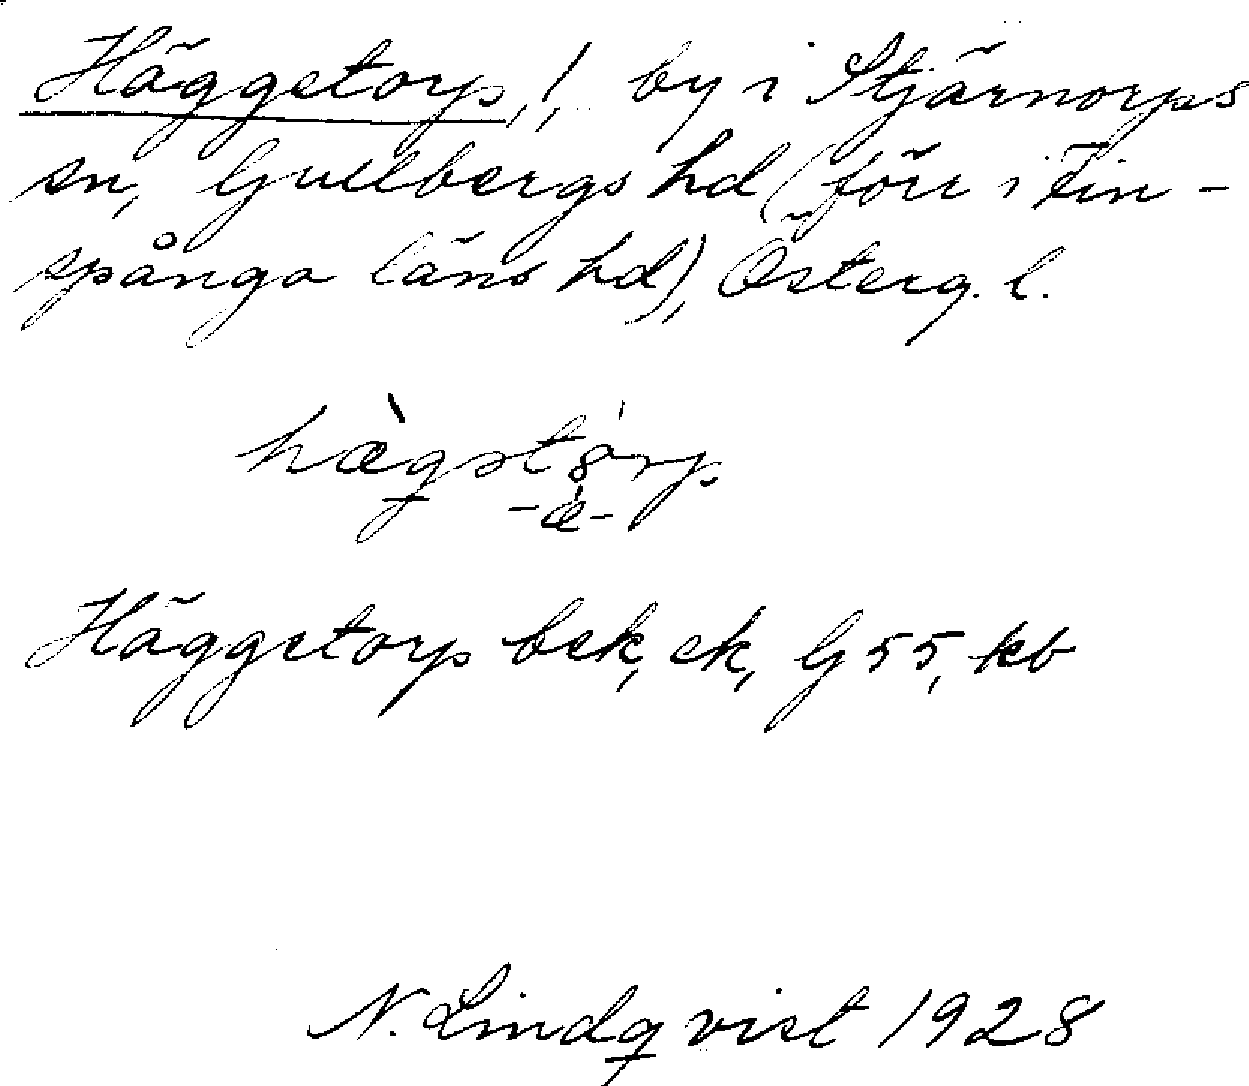 Häggetorp, !, by i Stjärnorps
sn, Gullbergs hd (förr i Fin-
spånga läns hd), Österg. l.
hæ̀gstórp
-ǽ-
Häggetorp bek, ek, G 55, kb
N. Lindqvist 1928